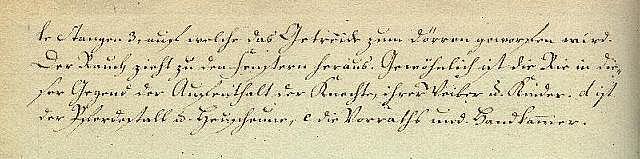 te Stangen 3, auf welche das Getreide zum Dörren geworfen wird.
Der Rauch zieht zu den Fenstern heraus. Gewöhnlich ist die Rie in die-
ser Gegend der Aufenthalt der Knechte, ihrer Weiber u. Kinder. d ist
der Pferdestall u. Heuscheune, e die Vorraths und Handkammer.